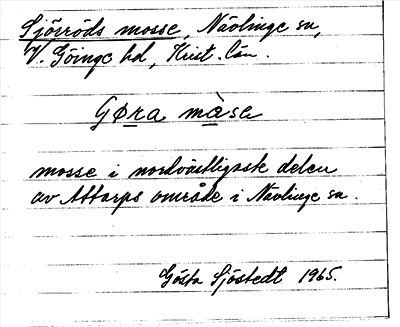 Sjörröds mosse, Nävlinge sn,
V. Göinge hd, Krist. län.
Gøra måse
mosse i nordvästligaste delen
av Attarps område i Nävlinge sn.
Gösta Sjöstedt 1965.